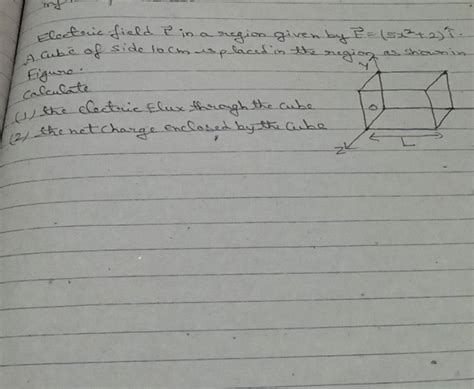 Electric field E⃗ in a region given by E⃗ = (5x²+2) î.
(A cube of side 10 cm is placed in the region as shown in
Figure.
Calculate
(1) the electric flux through the cube
(2) the net charge enclosed by the cube
Y
O
L
Z